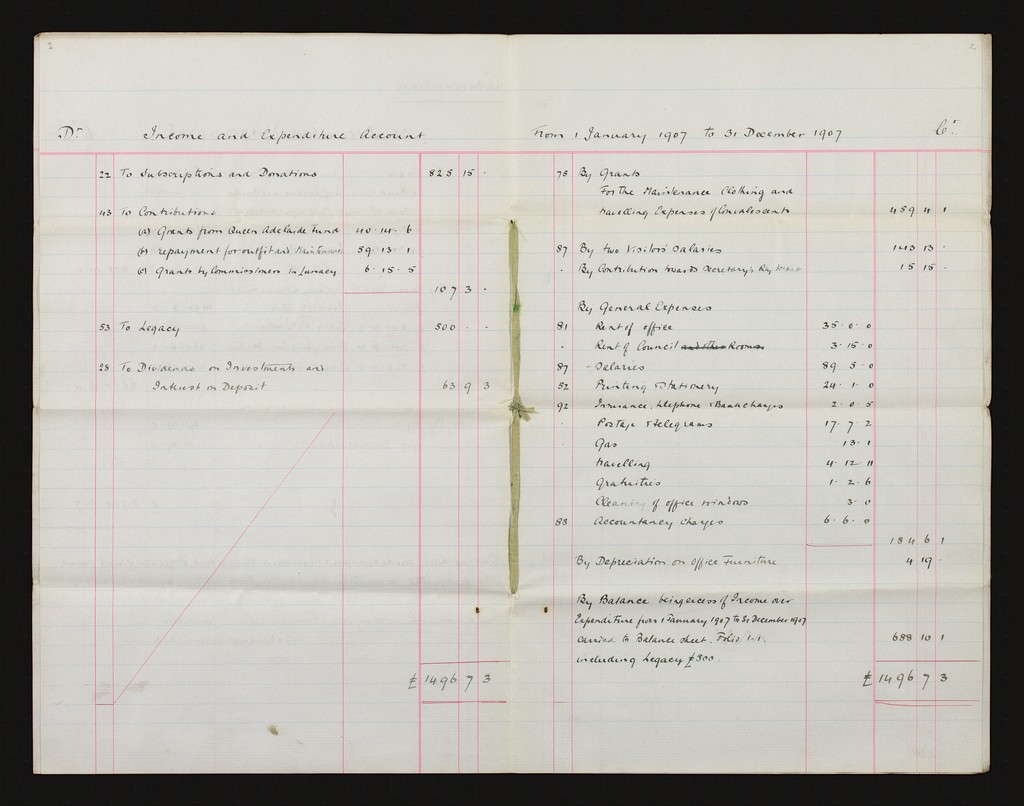 2
2
Dr Income and Expenditure Account
From 1 January 1907 to 31 December 1907 Cr.
22 To Subscriptions and Donations 825 15 .
43 To Contributions
(a) Grants from Queen Adelaide Fund 40 . 14 . 6
(b) repayment for outfit and Maintenance 59 . 13 . 1
(c) Grants by Commissioners in Lunacy 6 . 15 . 5
107 3 .
53 To Legacy 500 . .
28 To Dividends on Investments and
Interest on Deposit 63 9 3
£ 1496 7 3
75 By Grants
For the Maintenance Clothing and
travelling Expenses of Convalescents 459 4 1
87 By two Visitors Salaries 143 13 .
. By Contribution towards Secretary's 15 15 .
By General Expenses
81 Rent of office 35 . 0 . 0
. Rent of Council and other Rooms 3 . 15 . 0
87 - Salaries 89 5 . 0
52 Printing & Stationery 24 . 1 . 0
92 Insurance, telephone & Bank charges 2 . 0 . 5
. Postage & telegrams 17 . 7 . 2
. Gas 13 . 1
travelling 4 . 12 . 11
Gratuities 1 . 2 . 6
Cleaning of office windows 3 . 0
88 Accountancy charges 6 . 6 . 0
184 6 1
By Depreciation on office Furniture 4 19 .
By Balance being excess of Income over
Expenditure from 1 January 1907 to 31 December 1907
carried to Balance sheet. Folio 1.
including Legacy £500. 688 10 1
£ 1496 7 3